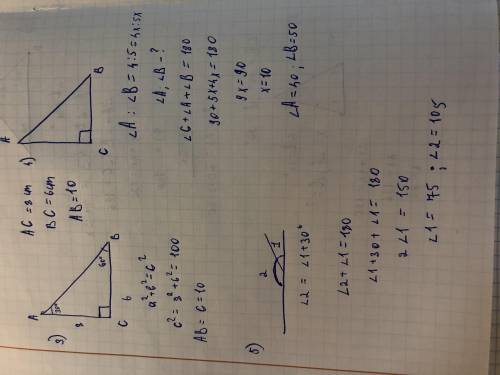 3)
A
B
C
8
6
30°
60°
AC = 8 cm
BC = 6cm
AB = 10
a²+b²=c²
c² = 8²+6² = 100
AB = C = 10
4)
A
B
C
∠A : ∠B = 4:5 = 4x:5x
∠A, ∠B - ?
∠C+∠A+∠B = 180
90+5x+4x = 180
9x = 90
x = 10
∠A = 40 ; ∠B = 50
5)
2
1
∠2 = ∠1+30°
∠2+∠1 = 180
∠1+30+∠1 = 180
2∠1 = 150
∠1 = 75 ; ∠2 = 105